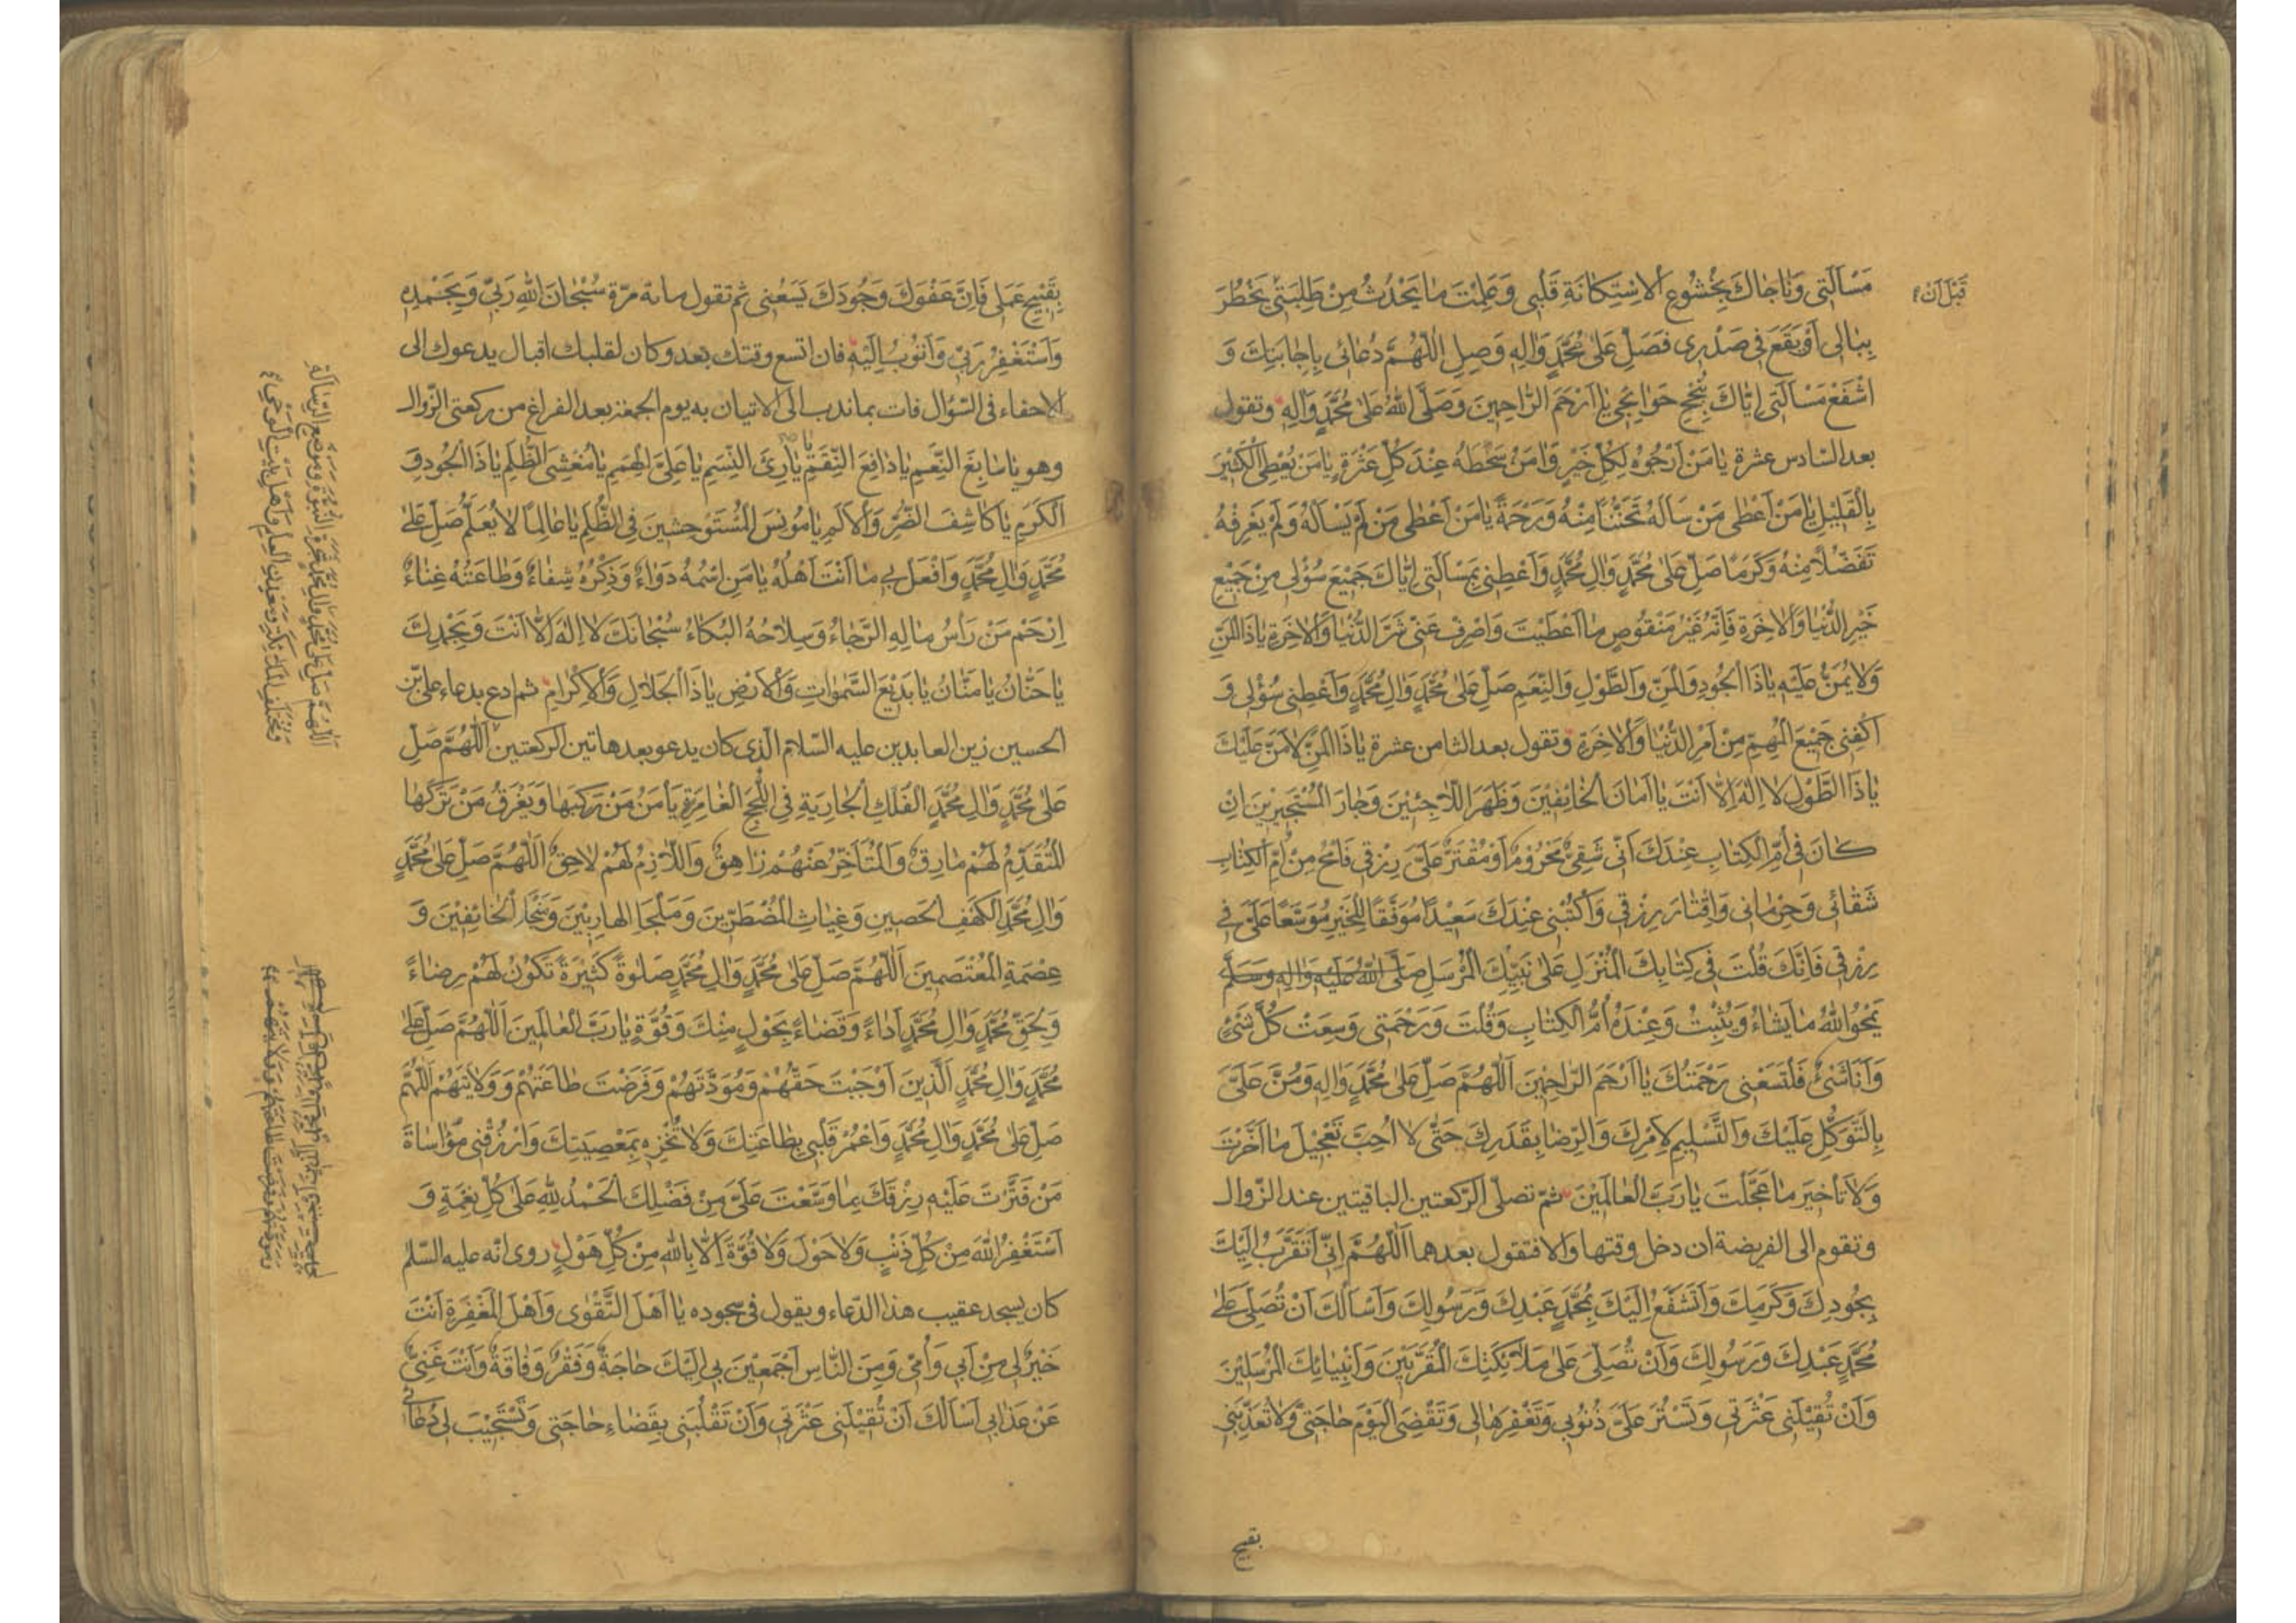 مَسْأَلَتِي وَنَاجَاكَ بِخُشُوعِ الْاِسْتِكَانَةِ قَلْبِي وَعَلِمْتَ مَا يَحْدُثُ مِنْ طَلِبَتِي يَخْطُرَ
قَبْلَ اَنْ
بِبَالِي أَوْ يَقَعَ فِي صَدْرِي فَصَلِّ عَلَى مُحَمَّدٍ وَآلِهِ وَصِلِ اللّٰهُمَّ دُعَائِي بِاِجَابَتِكَ وَ
اشْفَعْ مَسْأَلَتِي اِيَّاكَ بِنُجْحِ حَوَائِجِي يَا اَرْحَمَ الرَّاحِمِينَ وَصَلَّى اللهُ عَلَى مُحَمَّدٍ وَآلِهِ وتقول
بعد السادس عشرة يَا مَنْ اَرْجُوهُ لِكُلِّ خَيْرٍ وَآمَنُ سَخَطَهُ عِنْدَ كُلِّ عَثْرَةٍ يَا مَنْ يُعْطِي الْكَثِيرَ
بِالْقَلِيلِ يَا مَنْ اَعْطَى مَنْ سَأَلَهُ تَحَنُّنًا مِنْهُ وَرَحْمَةً يَا مَنْ اَعْطَى مَنْ لَمْ يَسْأَلْهُ وَلَمْ يَعْرِفْهُ
تَفَضُّلاً مِنْهُ وَكَرَمًا صَلِّ عَلَى مُحَمَّدٍ وَآلِ مُحَمَّدٍ وَاَعْطِنِي بِمَسْأَلَتِي اِيَّاكَ جَمِيعَ سُؤْلِي مِنْ جَمِيعِ
خَيْرِ الدُّنْيَا وَالْآخِرَةِ فَاِنَّهُ غَيْرُ مَنْقُوصٍ مَا اَعْطَيْتَ وَاصْرِفْ عَنِّي شَرَّ الدُّنْيَا وَالْآخِرَةِ يَا ذَا الْمَنِّ
وَلَا يُمَنُّ عَلَيْهِ يَا ذَا الْجُودِ وَالْمَنِّ وَالطَّوْلِ وَالنِّعَمِ صَلِّ عَلَى مُحَمَّدٍ وَآلِ مُحَمَّدٍ وَاَعْطِنِي سُؤْلِي وَ
اكْفِنِي جَمِيعَ الْمُهِمِّ مِنْ اَمْرِ الدُّنْيَا وَالْآخِرَةِ وتقول بعد الثامن عشرة يَا ذَا الْمَنِّ لَا مَنَّ عَلَيْكَ
يَا ذَا الطَّوْلِ لَا اِلٰهَ اِلَّا اَنْتَ يَا اَمَانَ الْخَائِفِينَ وَظَهْرَ اللَّاجِئِينَ وَجَارَ الْمُسْتَجِيرِينَ اِنْ
كَانَ فِي اُمِّ الْكِتَابِ عِنْدَكَ اَنِّي شَقِيٌّ مَحْرُومٌ اَوْ مُقْتَرٌ عَلَيَّ رِزْقِي فَامْحُ مِنْ اُمِّ الْكِتَابِ
شَقَائِي وَحِرْمَانِي وَاِقْتَارَ رِزْقِي وَاكْتُبْنِي عِنْدَكَ سَعِيدًا مُوَفَّقًا لِلْخَيْرِ مُوَسَّعًا عَلَيَّ فِي
رِزْقِي فَاِنَّكَ قُلْتَ فِي كِتَابِكَ الْمُنْزَلِ عَلَى نَبِيِّكَ الْمُرْسَلِ صَلَّى اللهُ عَلَيْهِ وَآلِهِ وَسَلَّمَ
يَمْحُو اللهُ مَا يَشَاءُ وَيُثْبِتُ وَعِنْدَهُ اُمُّ الْكِتَابِ وَقُلْتَ وَرَحْمَتِي وَسِعَتْ كُلَّ شَيْءٍ
وَاَنَا شَيْءٌ فَلْتَسَعْنِي رَحْمَتُكَ يَا اَرْحَمَ الرَّاحِمِينَ اَللّٰهُمَّ صَلِّ عَلَى مُحَمَّدٍ وَآلِهِ وَمُنَّ عَلَيَّ
بِالتَّوَكُّلِ عَلَيْكَ وَالتَّسْلِيمِ لِاَمْرِكَ وَالرِّضَا بِقَدَرِكَ حَتَّى لَا اُحِبَّ تَعْجِيلَ مَا اَخَّرْتَ
وَلَا تَأْخِيرَ مَا عَجَّلْتَ يَا رَبَّ الْعَالَمِينَ ثمّ تصلّى الرّكعتين الباقيتين عند الزّوال
وتقوم الى الفريضة ان دخل وقتها والا فتقول بعدهما اَللّٰهُمَّ اِنِّي اَتَقَرَّبُ اِلَيْكَ
بِجُودِكَ وَكَرَمِكَ وَاَتَشَفَّعُ اِلَيْكَ بِمُحَمَّدٍ عَبْدِكَ وَرَسُولِكَ وَاَسْاَلُكَ اَنْ تُصَلِّيَ عَلَى
مُحَمَّدٍ عَبْدِكَ وَرَسُولِكَ وَاَنْ تُصَلِّيَ عَلَى مَلَائِكَتِكَ الْمُقَرَّبِينَ وَاَنْبِيَائِكَ الْمُرْسَلِينَ
وَاَنْ تُقِيلَنِي عَثْرَتِي وَتَسْتُرَ عَلَيَّ ذُنُوبِي وَتَغْفِرَهَا لِي وَتَقْضِيَ الْيَوْمَ حَاجَتِي وَلَا تُعَذِّبَنِي
بقبيح
بِقَبِيحِ عَمَلِي فَاِنَّ عَفْوَكَ وَجُودَكَ يَسَعُنِي ثم تقول مائة مرّة سُبْحَانَ اللهِ رَبِّي وَبِحَمْدِهِ
وَاَسْتَغْفِرُ رَبِّي وَاَتُوبُ اِلَيْهِ فان اتسع وقتك بعد وكان لقلبك اقبال يدعوك الى
الاحفاء فى السّؤال فات بما ندب الى الاتيان به يوم الجمعة بعد الفراغ من ركعتى الزّوال
وهو يَا سَابِغَ النِّعَمِ يَا دَافِعَ النِّقَمِ يَا بَارِئَ النَّسَمِ يَا عَلِيَّ الْهِمَمِ يَا مُغْشِيَ الظُّلَمِ يَا ذَا الْجُودِ وَ
الْكَرَمِ يَا كَاشِفَ الضُّرِّ وَالْاَلَمِ يَا مُونِسَ الْمُسْتَوْحِشِينَ فِي الظُّلَمِ يَا عَالِمًا لَا يُعَلَّمُ صَلِّ عَلَى
مُحَمَّدٍ وَآلِ مُحَمَّدٍ وَافْعَلْ بِي مَا اَنْتَ اَهْلُهُ يَا مَنِ اسْمُهُ دَوَاءٌ وَذِكْرُهُ شِفَاءٌ وَطَاعَتُهُ غِنَاءٌ
اِرْحَمْ مَنْ رَأْسُ مَالِهِ الرَّجَاءُ وَسِلَاحُهُ الْبُكَاءُ سُبْحَانَكَ لَا اِلٰهَ اِلَّا اَنْتَ وَبِحَمْدِكَ
يَا حَنَّانُ يَا مَنَّانُ يَا بَدِيعَ السَّمٰوَاتِ وَالْاَرْضِ يَا ذَا الْجَلَالِ وَالْاِكْرَامِ ثم ادع بدعاء على بن
الحسين زين العابدين عليه السّلام الّذى كان يدعو بعد هاتين الركعتين اَللّٰهُمَّ صَلِّ
عَلَى مُحَمَّدٍ وَآلِ مُحَمَّدٍ الْفُلْكِ الْجَارِيَةِ فِي اللُّجَجِ الْغَامِرَةِ يَأْمَنُ مَنْ رَكِبَهَا وَيَغْرَقُ مَنْ تَرَكَهَا
الْمُتَقَدِّمُ لَهُمْ مَارِقٌ وَالْمُتَاَخِّرُ عَنْهُمْ زَاهِقٌ وَاللَّازِمُ لَهُمْ لَاحِقٌ اَللّٰهُمَّ صَلِّ عَلَى مُحَمَّدٍ
وَآلِ مُحَمَّدٍ الْكَهْفِ الْحَصِينِ وَغِيَاثِ الْمُضْطَرِّينَ وَمَلْجَاِ الْهَارِبِينَ وَمَنْجَا الْخَائِفِينَ وَ
عِصْمَةِ الْمُعْتَصِمِينَ اَللّٰهُمَّ صَلِّ عَلَى مُحَمَّدٍ وَآلِ مُحَمَّدٍ صَلٰوةً كَثِيرَةً تَكُونُ لَهُمْ رِضَاءً
وَلِحَقِّ مُحَمَّدٍ وَآلِ مُحَمَّدٍ اَدَاءً وَقَضَاءً بِحَوْلٍ مِنْكَ وَقُوَّةٍ يَا رَبَّ الْعَالَمِينَ اَللّٰهُمَّ صَلِّ عَلَى
مُحَمَّدٍ وَآلِ مُحَمَّدٍ الَّذِينَ اَوْجَبْتَ حَقَّهُمْ وَمَوَدَّتَهُمْ وَفَرَضْتَ طَاعَتَهُمْ وَوَلَايَتَهُمْ اَللّٰهُمَّ
صَلِّ عَلَى مُحَمَّدٍ وَآلِ مُحَمَّدٍ وَاعْمُرْ قَلْبِي بِطَاعَتِكَ وَلَا تُخْزِهِ بِمَعْصِيَتِكَ وَارْزُقْنِي مُؤَاسَاةَ
مَنْ قَتَّرْتَ عَلَيْهِ رِزْقَكَ بِمَا وَسَّعْتَ عَلَيَّ مِنْ فَضْلِكَ الْحَمْدُ لِلّٰهِ عَلَى كُلِّ نِعْمَةٍ وَ
اَسْتَغْفِرُ اللهَ مِنْ كُلِّ ذَنْبٍ وَلَا حَوْلَ وَلَا قُوَّةَ اِلَّا بِاللهِ مِنْ كُلِّ هَوْلٍ روى انّه عليه السّلام
كان يسجد عقيب هذا الدّعاء ويقول فى سجوده يَا اَهْلَ التَّقْوٰى وَاَهْلَ الْمَغْفِرَةِ اَنْتَ
خَيْرٌ لِي مِنْ اَبِي وَاُمِّي وَمِنَ النَّاسِ اَجْمَعِينَ بِي اِلَيْكَ حَاجَةٌ وَفَقْرٌ وَفَاقَةٌ وَاَنْتَ غَنِيٌّ
عَنْ عَذَابِي اَسْاَلُكَ اَنْ تُقِيلَنِي عَثْرَتِي وَاَنْ تَقْلِبَنِي بِقَضَاءِ حَاجَتِي وَتَسْتَجِيبَ لِي دُعَائِي
اَللّٰهُمَّ صَلِّ عَلَى مُحَمَّدٍ وَآلِ مُحَمَّدٍ شَجَرَةِ النُّبُوَّةِ وَمَوْضِعِ الرِّسَالَةِ
وَمُخْتَلَفِ الْمَلَائِكَةِ وَمَعْدِنِ الْعِلْمِ وَاَهْلِ بَيْتِ الْوَحْيِ